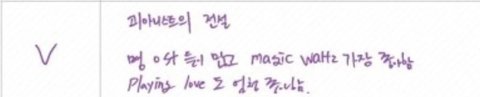 V
피아니스트의 전설
명 OST 들이 많고 Magic Waltz 가장 좋아함
Playing love 도 엄청 좋아함.